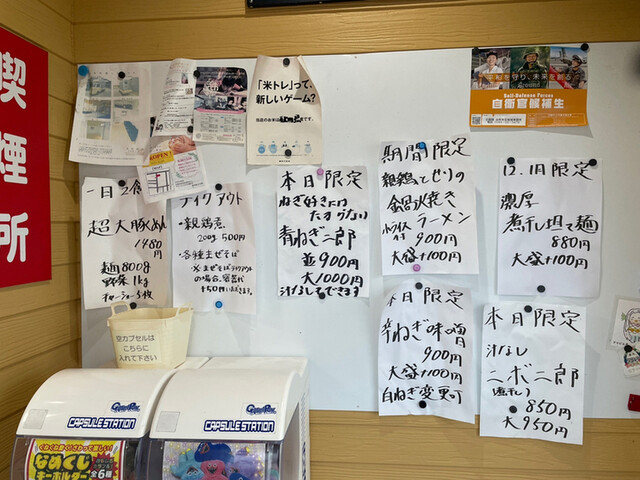 喫煙所
「米トレ」って、
新しいゲーム?
平和を守り、未来を創る
Self-Defense Forces
自衛官候補生
一日2食
超大豚めん
1480円
麺800g
野菜1kg
チャーシュー5枚
テイクアウト
・親鶏煮
200g 500円
・各種まぜそば
※まぜそばテイクアウト
の場合、容器代
+50円いただきます。
本日限定
ねぎ好きには
たまらない
青ねぎ二郎
並900円
大1000円
汁なしもできます
期間限定
親鶏とせりの
鍋焼き
ラーメン
小ライス
付き
900円
大盛+100円
12.1月限定
濃厚
煮干し坦々麺
880円
大盛+100円
本日限定
辛ねぎ味噌
900円
大盛+100円
白ねぎ変更可
本日限定
汁なし
ニボ二郎
(煮干し)
850円
大950円
空カプセルは
こちらに
入れて下さい
CAPSULE STATION
CAPSULE STATION
なめくじ
キーホルダー
全6種